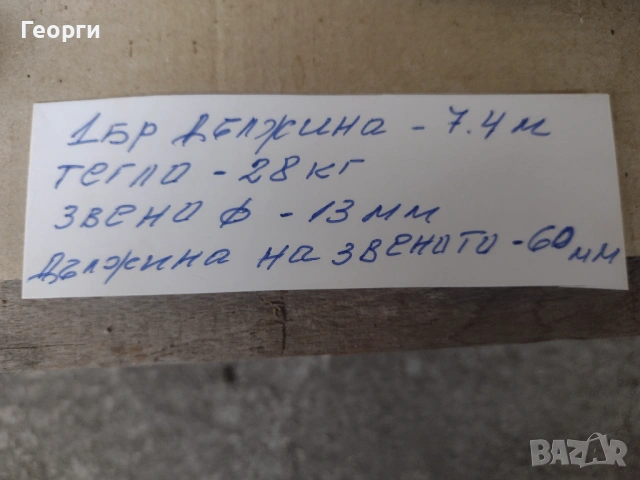 Георги
1 БР ДЪЛЖИНА - 7.4 М
ТЕГЛО - 28 КГ
ЗВЕНО Ф - 13 ММ
ДЪЛЖИНА НА ЗВЕНОТО - 60 ММ
BAZAR